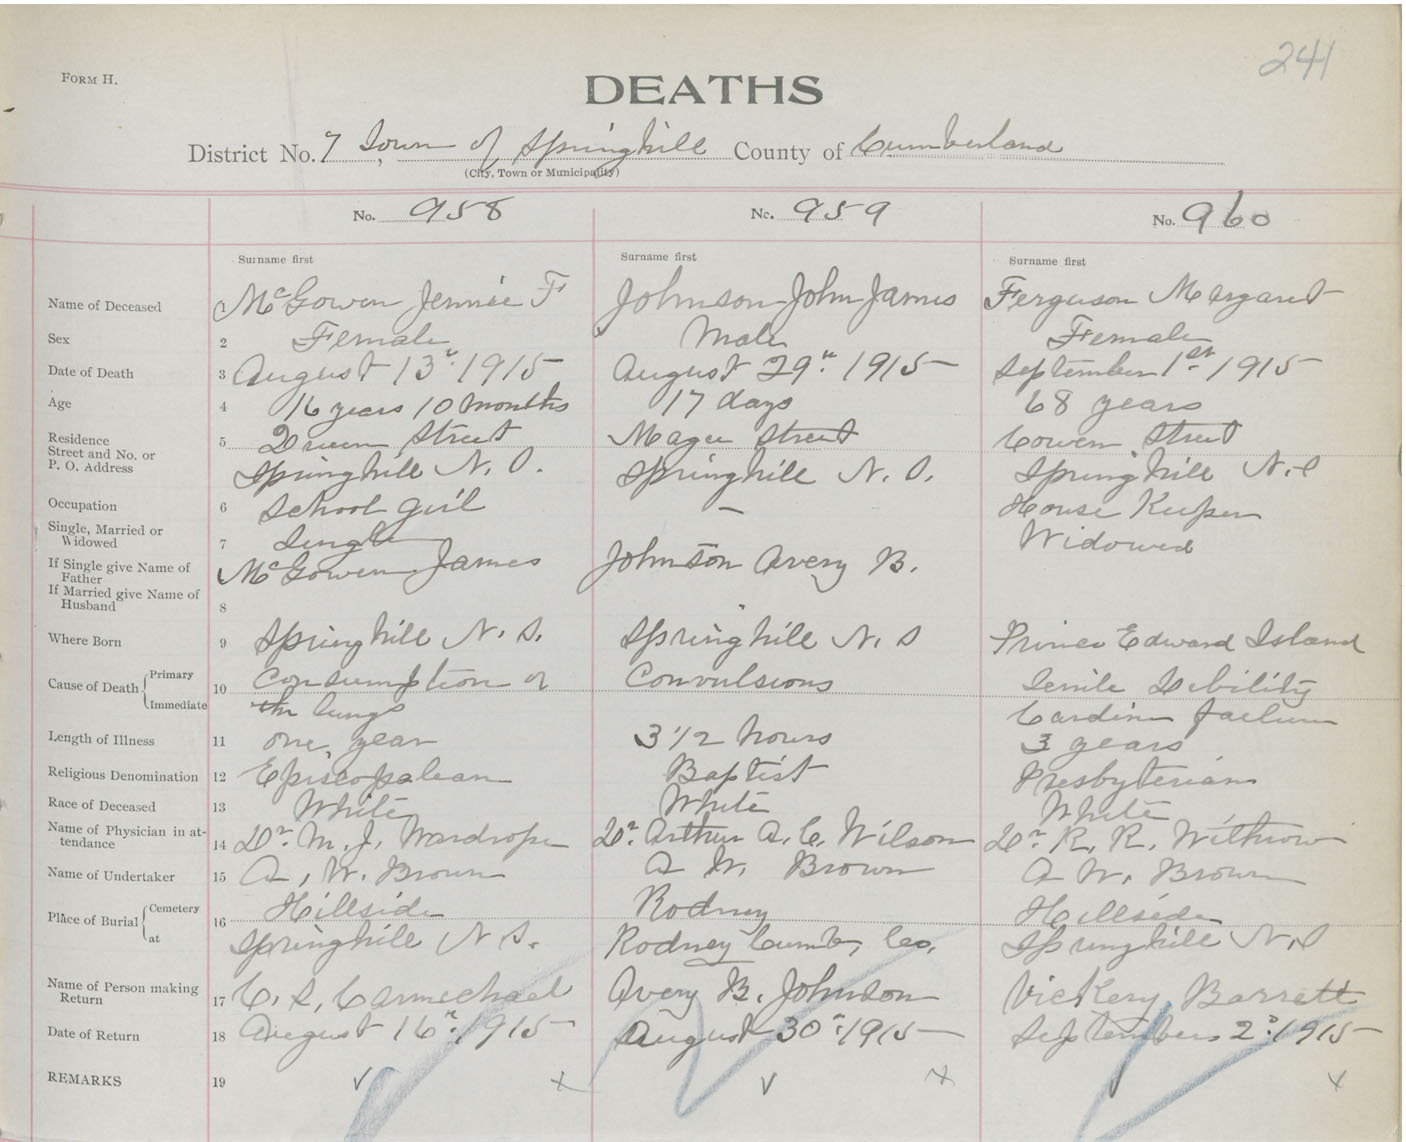 241
FORM H.
DEATHS
District No. 7, Town of Springhill County of Cumberland
(City, Town or Municipality)
No. 958 No. 959 No. 960
Surname first Surname first Surname first
Name of Deceased McGowen Jennie F Johnson John James Ferguson Margaret
Sex 2 Female Male Female
Date of Death 3 August 13th 1915 August 29th 1915 September 1st 1915
Age 4 16 years 10 months 17 days 68 years
Residence 5 Queen Street Magee Street Cowen Street
Street and No. or
P. O. Address Springhill N. S. Springhill N. S. Springhill N. S
Occupation 6 School girl — House Keeper
Single, Married or
Widowed 7 Single Widowed
If Single give Name of
Father McGowen James Johnson Avery B.
If Married give Name of
Husband 8
Where Born 9 Springhill N. S. Springhill N. S Prince Edward Island
Cause of Death Primary 10 Consumption of Convulsions Senile Debility
Immediate the lungs Cardiac failure
Length of Illness 11 one year 3 1/2 hours 3 years
Religious Denomination 12 Episcopalean Baptist Presbyterian
Race of Deceased 13 White White White
Name of Physician in at-
tendance 14 Dr. M. J. Wardrope Dr. Arthur A. C. Wilson Dr R. R. Withrow
Name of Undertaker 15 A. W. Brown A W. Brown A W. Brown
Place of Burial Cemetery 16 Hillside Rodney Hillside
at Springhill N S. Rodney Cumb, Co. Springhill N. S
Name of Person making
Return 17 C. S. Carmichael Avery B. Johnson Vickery Barrett
Date of Return 18 August 16th 1915 August 30th 1915 September 2d 1915
REMARKS 19 ✓ x ✓ x ✓ x